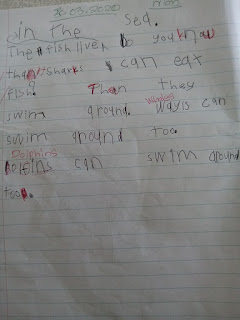 In the Sea.
The fish liveh Do you know
that sharks can eat
fish? Then they
swim ground. whales wayls can
swim ground too.
Dolphins
Dolfins can swim ground
too.